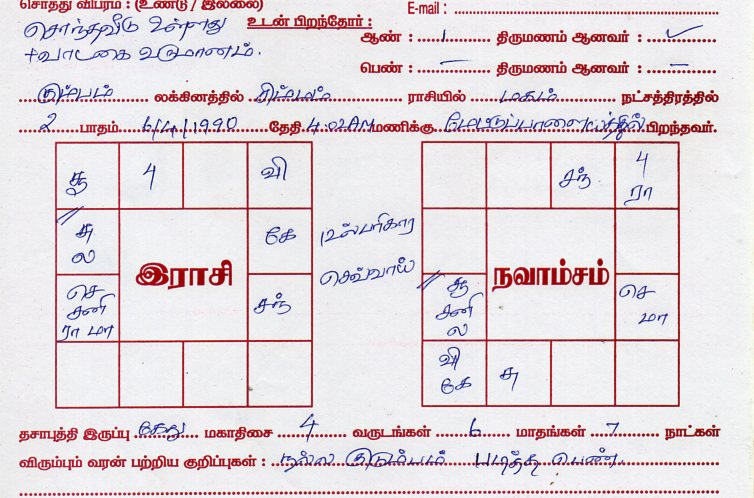 சொத்து விபரம் : (உண்டு / இல்லை)
E-mail :
சொந்தவீடு உள்ளது
உடன் பிறந்தோர் :
+வாடகை வருமானம்.
ஆண் : 1 திருமணம் ஆனவர் : ✓
பெண் : — திருமணம் ஆனவர் : —
கும்பம் லக்கினத்தில் சிம்மம் ராசியில் மகம் நட்சத்திரத்தில்
2 பாதம் 6/4/1990 தேதி 4.02AM மணிக்கு மேட்டுப்பாளையத்தில் பிறந்தவர்.
சூ 4 வி
சு
ல
கே
செ
சனி
ரா மா
சந்
இராசி
பரிகார
செவ்வாய்
சந் 4
ரா
நவாம்சம்
சூ
சனி
ல
செ
மா
வி
கே
சு
தசாபுத்தி இருப்பு கேது மகாதிசை 4 வருடங்கள் 6 மாதங்கள் 7 நாட்கள்
விரும்பும் வரன் பற்றிய குறிப்புகள் : நல்ல குடும்பம் படித்த பெண்.